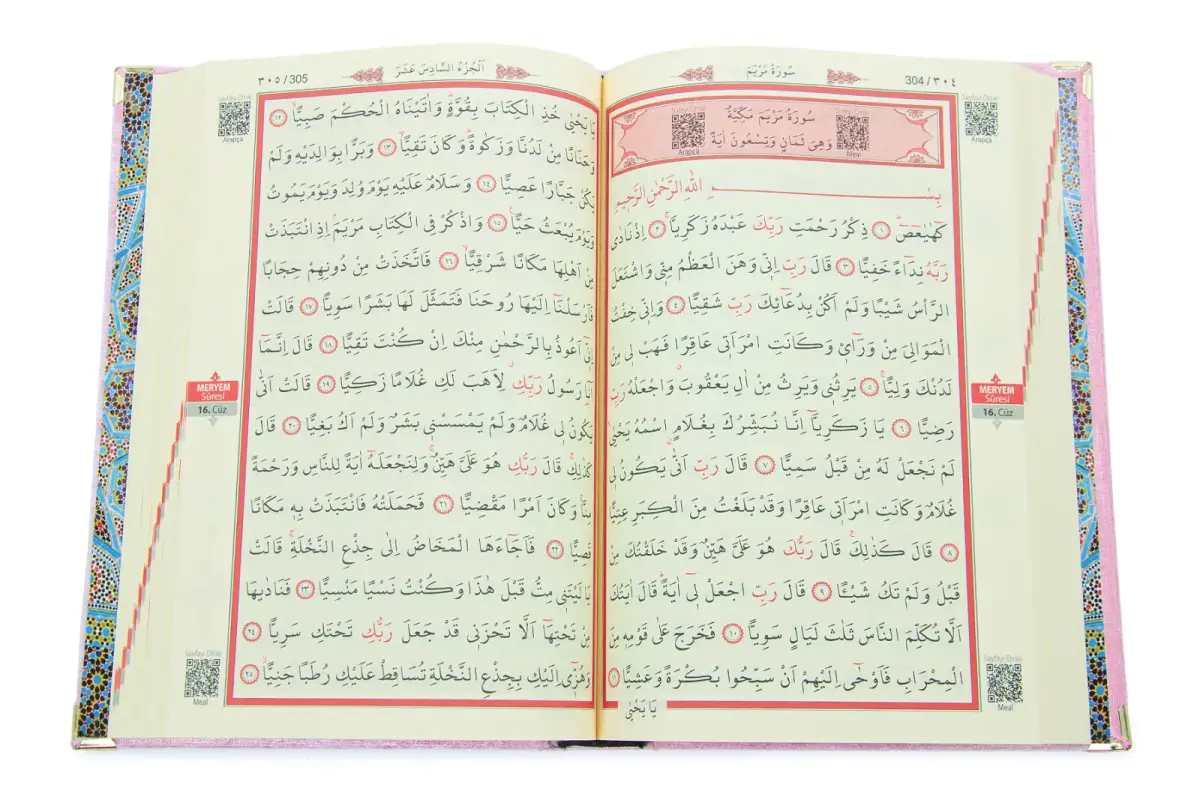 304 / ٣٠٤
سُورَةُ مَرْيَمَ
Sayfayı Dinle
Arapça
سُورَةُ مَرْيَمَ مَكِّيَّةٌ
وَهِيَ ثَمَانٍ وَتِسْعُونَ اٰيَةً
Arapça
Meal
بِسْــــمِ اللّٰهِ الرَّحْمٰنِ الرَّحِيمِ
كٓهٰيٰعٓصٓ ﴿١﴾ ذِكْرُ رَحْمَتِ رَبِّكَ عَبْدَهُ زَكَرِيَّا ﴿٢﴾ اِذْ نَادٰى
رَبَّهُ نِدَٓاءً خَفِيًّا ﴿٣﴾ قَالَ رَبِّ اِنّ۪ي وَهَنَ الْعَظْمُ مِنّ۪ي وَاشْتَعَلَ
الرَّأْسُ شَيْبًا وَلَمْ اَكُنْ بِدُعَٓائِكَ رَبِّ شَقِيًّا ﴿٤﴾ وَاِنّ۪ي خِفْتُ
الْمَوَالِيَ مِنْ وَرَٓائ۪ي وَكَانَتِ امْرَاَت۪ي عَاقِرًا فَهَبْ ل۪ي مِنْ
لَدُنْكَ وَلِيًّا ﴿٥﴾ يَرِثُن۪ي وَيَرِثُ مِنْ اٰلِ يَعْقُوبَ وَاجْعَلْهُ رَبِّ
رَضِيًّا ﴿٦﴾ يَا زَكَرِيَّٓا اِنَّا نُبَشِّرُكَ بِغُلَامٍ اسْمُهُ يَحْيٰى
لَمْ نَجْعَلْ لَهُ مِنْ قَبْلُ سَمِيًّا ﴿٧﴾ قَالَ رَبِّ اَنّٰى يَكُونُ ل۪ي
غُلَامٌ وَكَانَتِ امْرَاَت۪ي عَاقِرًا وَقَدْ بَلَغْتُ مِنَ الْكِبَرِ عِتِيًّا
﴿٨﴾ قَالَ كَذٰلِكَ قَالَ رَبُّكَ هُوَ عَلَيَّ هَيِّنٌ وَقَدْ خَلَقْتُكَ مِنْ
قَبْلُ وَلَمْ تَكُ شَيْـًٔا ﴿٩﴾ قَالَ رَبِّ اجْعَلْ ل۪ٓي اٰيَةً قَالَ اٰيَتُكَ
اَلَّا تُكَلِّمَ النَّاسَ ثَلٰثَ لَيَالٍ سَوِيًّا ﴿١٠﴾ فَخَرَجَ عَلٰى قَوْمِه۪ مِنَ
الْمِحْرَابِ فَاَوْحٰٓى اِلَيْهِمْ اَنْ سَبِّحُوا بُكْرَةً وَعَشِيًّا ﴿١١﴾
يَا يَحْيٰى
MERYEM
Sûresi
16. Cüz
Sayfayı Dinle
Meal
٣٠٥ / 305
اَلْجُزْءُ السَّادِسَ عَشَرَ
Sayfayı Dinle
Arapça
يَا يَحْيٰى خُذِ الْكِتَابَ بِقُوَّةٍ وَاٰتَيْنَاهُ الْحُكْمَ صَبِيًّا ﴿١٢﴾
وَحَنَانًا مِنْ لَدُنَّا وَزَكٰوةً وَكَانَ تَقِيًّا ﴿١٣﴾ وَبَرًّا بِوَالِدَيْهِ وَلَمْ
يَكُنْ جَبَّارًا عَصِيًّا ﴿١٤﴾ وَسَلَامٌ عَلَيْهِ يَوْمَ وُلِدَ وَيَوْمَ يَمُوتُ
وَيَوْمَ يُبْعَثُ حَيًّا ﴿١٥﴾ وَاذْكُرْ فِي الْكِتَابِ مَرْيَمَ اِذِ انْتَبَذَتْ
مِنْ اَهْلِهَا مَكَانًا شَرْقِيًّا ﴿١٦﴾ فَاتَّخَذَتْ مِنْ دُونِهِمْ حِجَابًا
فَاَرْسَلْنَٓا اِلَيْهَا رُوحَنَا فَتَمَثَّلَ لَهَا بَشَرًا سَوِيًّا ﴿١٧﴾ قَالَتْ
اِنّ۪ٓي اَعُوذُ بِالرَّحْمٰنِ مِنْكَ اِنْ كُنْتَ تَقِيًّا ﴿١٨﴾ قَالَ اِنَّمَٓا
اَنَا رَسُولُ رَبِّكِ لِاَهَبَ لَكِ غُلَامًا زَكِيًّا ﴿١٩﴾ قَالَتْ اَنّٰى
يَكُونُ ل۪ي غُلَامٌ وَلَمْ يَمْسَسْن۪ي بَشَرٌ وَلَمْ اَكُ بَغِيًّا ﴿٢٠﴾ قَالَ
كَذٰلِكِ قَالَ رَبُّكِ هُوَ عَلَيَّ هَيِّنٌ وَلِنَجْعَلَهُٓ اٰيَةً لِلنَّاسِ وَرَحْمَةً
مِنَّا وَكَانَ اَمْرًا مَقْضِيًّا ﴿٢١﴾ فَحَمَلَتْهُ فَانْتَبَذَتْ بِه۪ مَكَانًا
قَصِيًّا ﴿٢٢﴾ فَاَجَٓاءَهَا الْمَخَاضُ اِلٰى جِذْعِ النَّخْلَةِ قَالَتْ
يَا لَيْتَن۪ي مِتُّ قَبْلَ هٰذَا وَكُنْتُ نَسْيًا مَنْسِيًّا ﴿٢٣﴾ فَنَادٰيهَا
مِنْ تَحْتِهَٓا اَلَّا تَحْزَن۪ي قَدْ جَعَلَ رَبُّكِ تَحْتَكِ سَرِيًّا ﴿٢٤﴾
وَهُزّ۪ٓي اِلَيْكِ بِجِذْعِ النَّخْلَةِ تُسَاقِطْ عَلَيْكِ رُطَبًا جَنِيًّا ﴿٢٥﴾
MERYEM
Sûresi
16. Cüz
Sayfayı Dinle
Meal